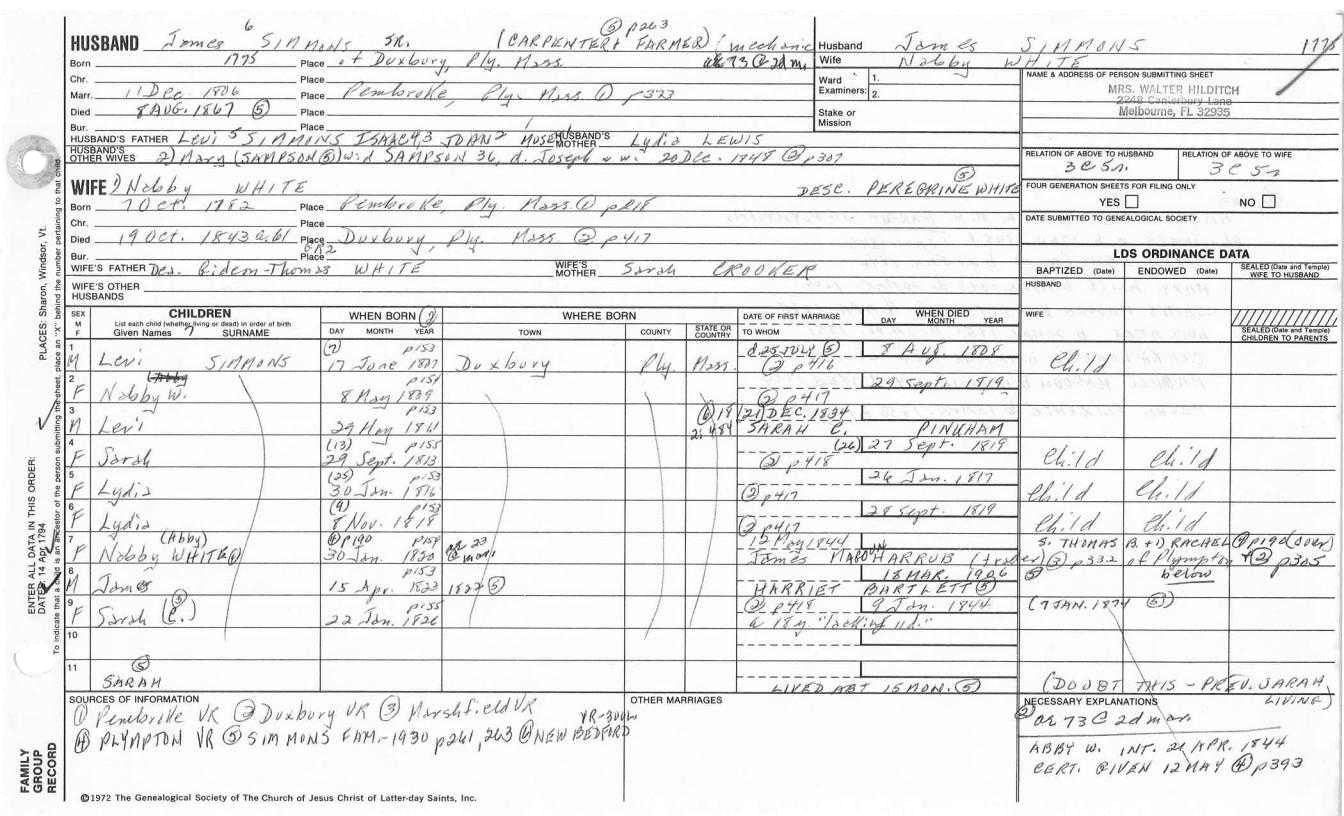 6 ⑤ p263
HUSBAND James SIMMONS SR. (CARPENTER, FARMER) mechanic
Born 1775 Place of Duxbury, Ply. Mass. ae 73 @ 2d m.
Chr. Place
Marr. 11 Dec. 1806 Place Pembroke, Ply. Mass ① p323
Died 8 AUG. 1867 ⑤ Place
Bur. Place
HUSBAND'S FATHER Levi 5 SIMMONS ISAAC43 JOHN2 MOSES HUSBAND'S MOTHER Lydia LEWIS
HUSBAND'S OTHER WIVES 2) Mary (SAMPSON⑤) wid SAMPSON 36, d. Joseph 20 DEC. 1848 ② p307
Husband James SIMMONS 1775
Wife Nabby WHITE
Ward Examiners: 1.
2.
Stake or Mission
NAME & ADDRESS OF PERSON SUBMITTING SHEET
MRS. WALTER HILDITCH
2248 Canterbury Lane
Melbourne, FL 32935
RELATION OF ABOVE TO HUSBAND RELATION OF ABOVE TO WIFE
3C 5r. 3C 5r
FOUR GENERATION SHEETS FOR FILING ONLY
YES NO
DATE SUBMITTED TO GENEALOGICAL SOCIETY
WIFE Nabby WHITE DESC. PEREGRINE WHITE ⑤
Born 7 Oct. 1782 Place Pembroke, Ply. Mass. ① p218
Chr. Place
Died 19 Oct. 1843 a. 61 Place Duxbury, Ply. Mass ② p417
Bur. Place GR2
WIFE'S FATHER Dea. Gideon-Thomas WHITE WIFE'S MOTHER Sarah CROOKER
WIFE'S OTHER HUSBANDS
LDS ORDINANCE DATA
BAPTIZED (Date) ENDOWED (Date) SEALED (Date and Temple) WIFE TO HUSBAND
HUSBAND
WIFE
SEALED (Date and Temple) CHILDREN TO PARENTS
SEX M F CHILDREN WHEN BORN ② WHERE BORN DATE OF FIRST MARRIAGE WHEN DIED
List each child (whether living or dead) in order of birth
Given Names 7 SURNAME DAY MONTH YEAR TOWN COUNTY STATE OR COUNTRY TO WHOM DAY MONTH YEAR
1 (7) p153 d 25 JULY ⑤ 8 Aug. 1808
M Levi SIMMONS 17 June 1807 Duxbury Ply. Mass. ② p416 Child
2 Abby p154 29 Sept. 1819
F Nabby W. 8 May 1809 ② p417
3 p153 ⑥ 18/21 DEC. 1834
M Levi 29 May 1811 2:484 SARAH C. PINKHAM
4 (13) p155 (26) 27 Sept. 1819
F Sarah 29 Sept. 1813 ② p418 Child Child
5 (25) p153 26 Jan. 1817
F Lydia 30 Jan. 1816 ② p417 Child Child
6 (9) p153 28 Sept. 1819
F Lydia 8 Nov. 1818 ② p417 Child Child
7 (Abby) ④ p190 p154 ae 23 12 May 1844 S. THOMAS B. + 1) RACHEL ④ p190 (over)
F Nabby WHITE④ 30 Jan. 1820 @ marr. James HARRUB (trader) ③ p332 of Plympton + ② p305
8 p153 18 MAR. 1906 ⑤ below
M James 15 Apr. 1823 1822 ⑤ HARRIET BARTLETT ⑤
9 ⑤ p155 ② p418 9 Jan. 1844 (7 JAN. 1874 ⑤)
F Sarah (C.) 22 Jan. 1826 a 18 y. "lacking 11 d."
10
11 ⑤
SARAH LIVED ABT 15 MON. ⑤ (DOUBT THIS - PREV. SARAH LIVING)
SOURCES OF INFORMATION
① Pembroke VR ② Duxbury VR ③ Marshfield VR
④ PLYMPTON VR ⑤ SIMMONS FAM.-1930 p261, 263 ⑥ NEW BEDFORD VR
OTHER MARRIAGES
NECESSARY EXPLANATIONS
② ae 73 @ 2d mar.
ABBY W. INT. 21 APR. 1844
CERT. GIVEN 12 MAY ④ p393
©1972 The Genealogical Society of The Church of Jesus Christ of Latter-day Saints, Inc.
FAMILY GROUP RECORD
ENTER ALL DATA IN THIS ORDER:
DATES: 14 Apr 1794
PLACES: Sharon, Windsor, Vt.
To indicate that a child is an ancestor of the person submitting the sheet, place an "X" behind the number pertaining to that child.